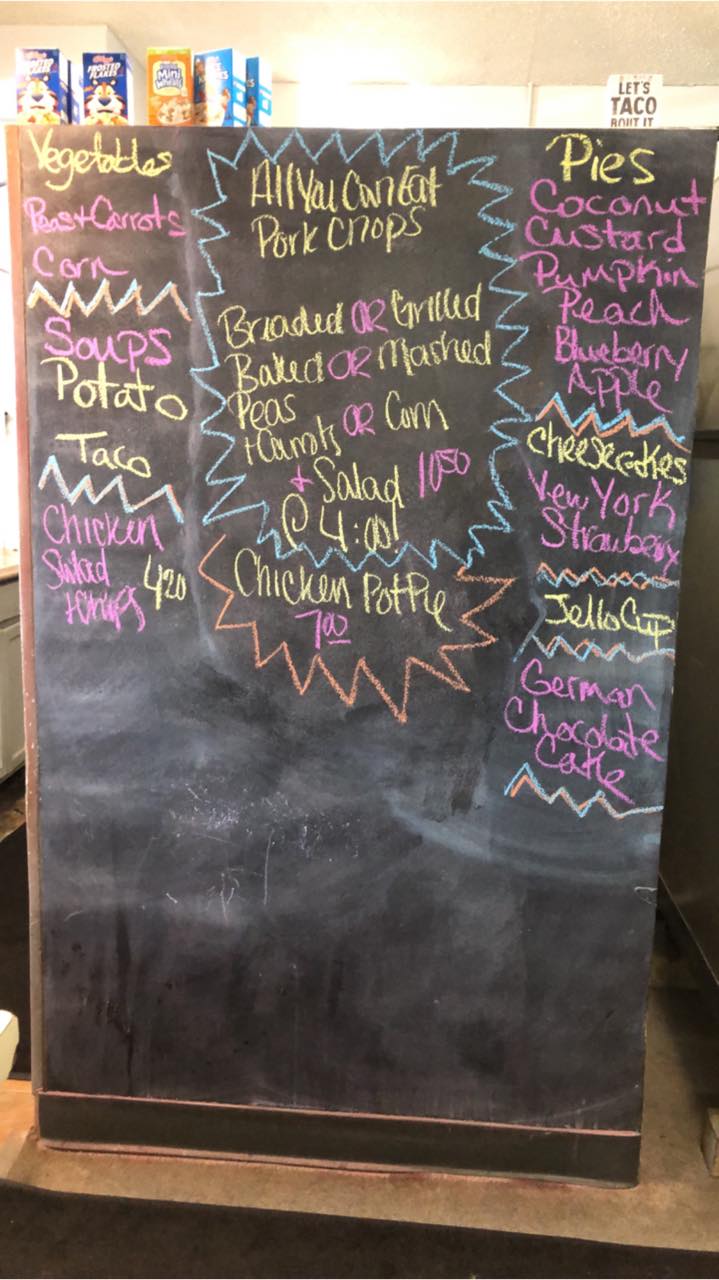 FROSTED FLAKES
FROSTED FLAKES
Mini Wheats
LET'S
TACO
BOUT IT
Vegetables
Peas + Carrots
Corn
Soups
Potato
Taco
Chicken
Salad 4.20
+ Chips
All You Can Eat
Pork Chops
Breaded OR Grilled
Baked OR Mashed
Peas
+ Carrots OR Corn
+ Salad 10.50
@ 4:00!
Chicken Pot Pie
7.00
Pies
Coconut
Custard
Pumpkin
Peach
Blueberry
Apple
Cheesecakes
New York
Strawberry
Jello Cup
German
Chocolate
Cake